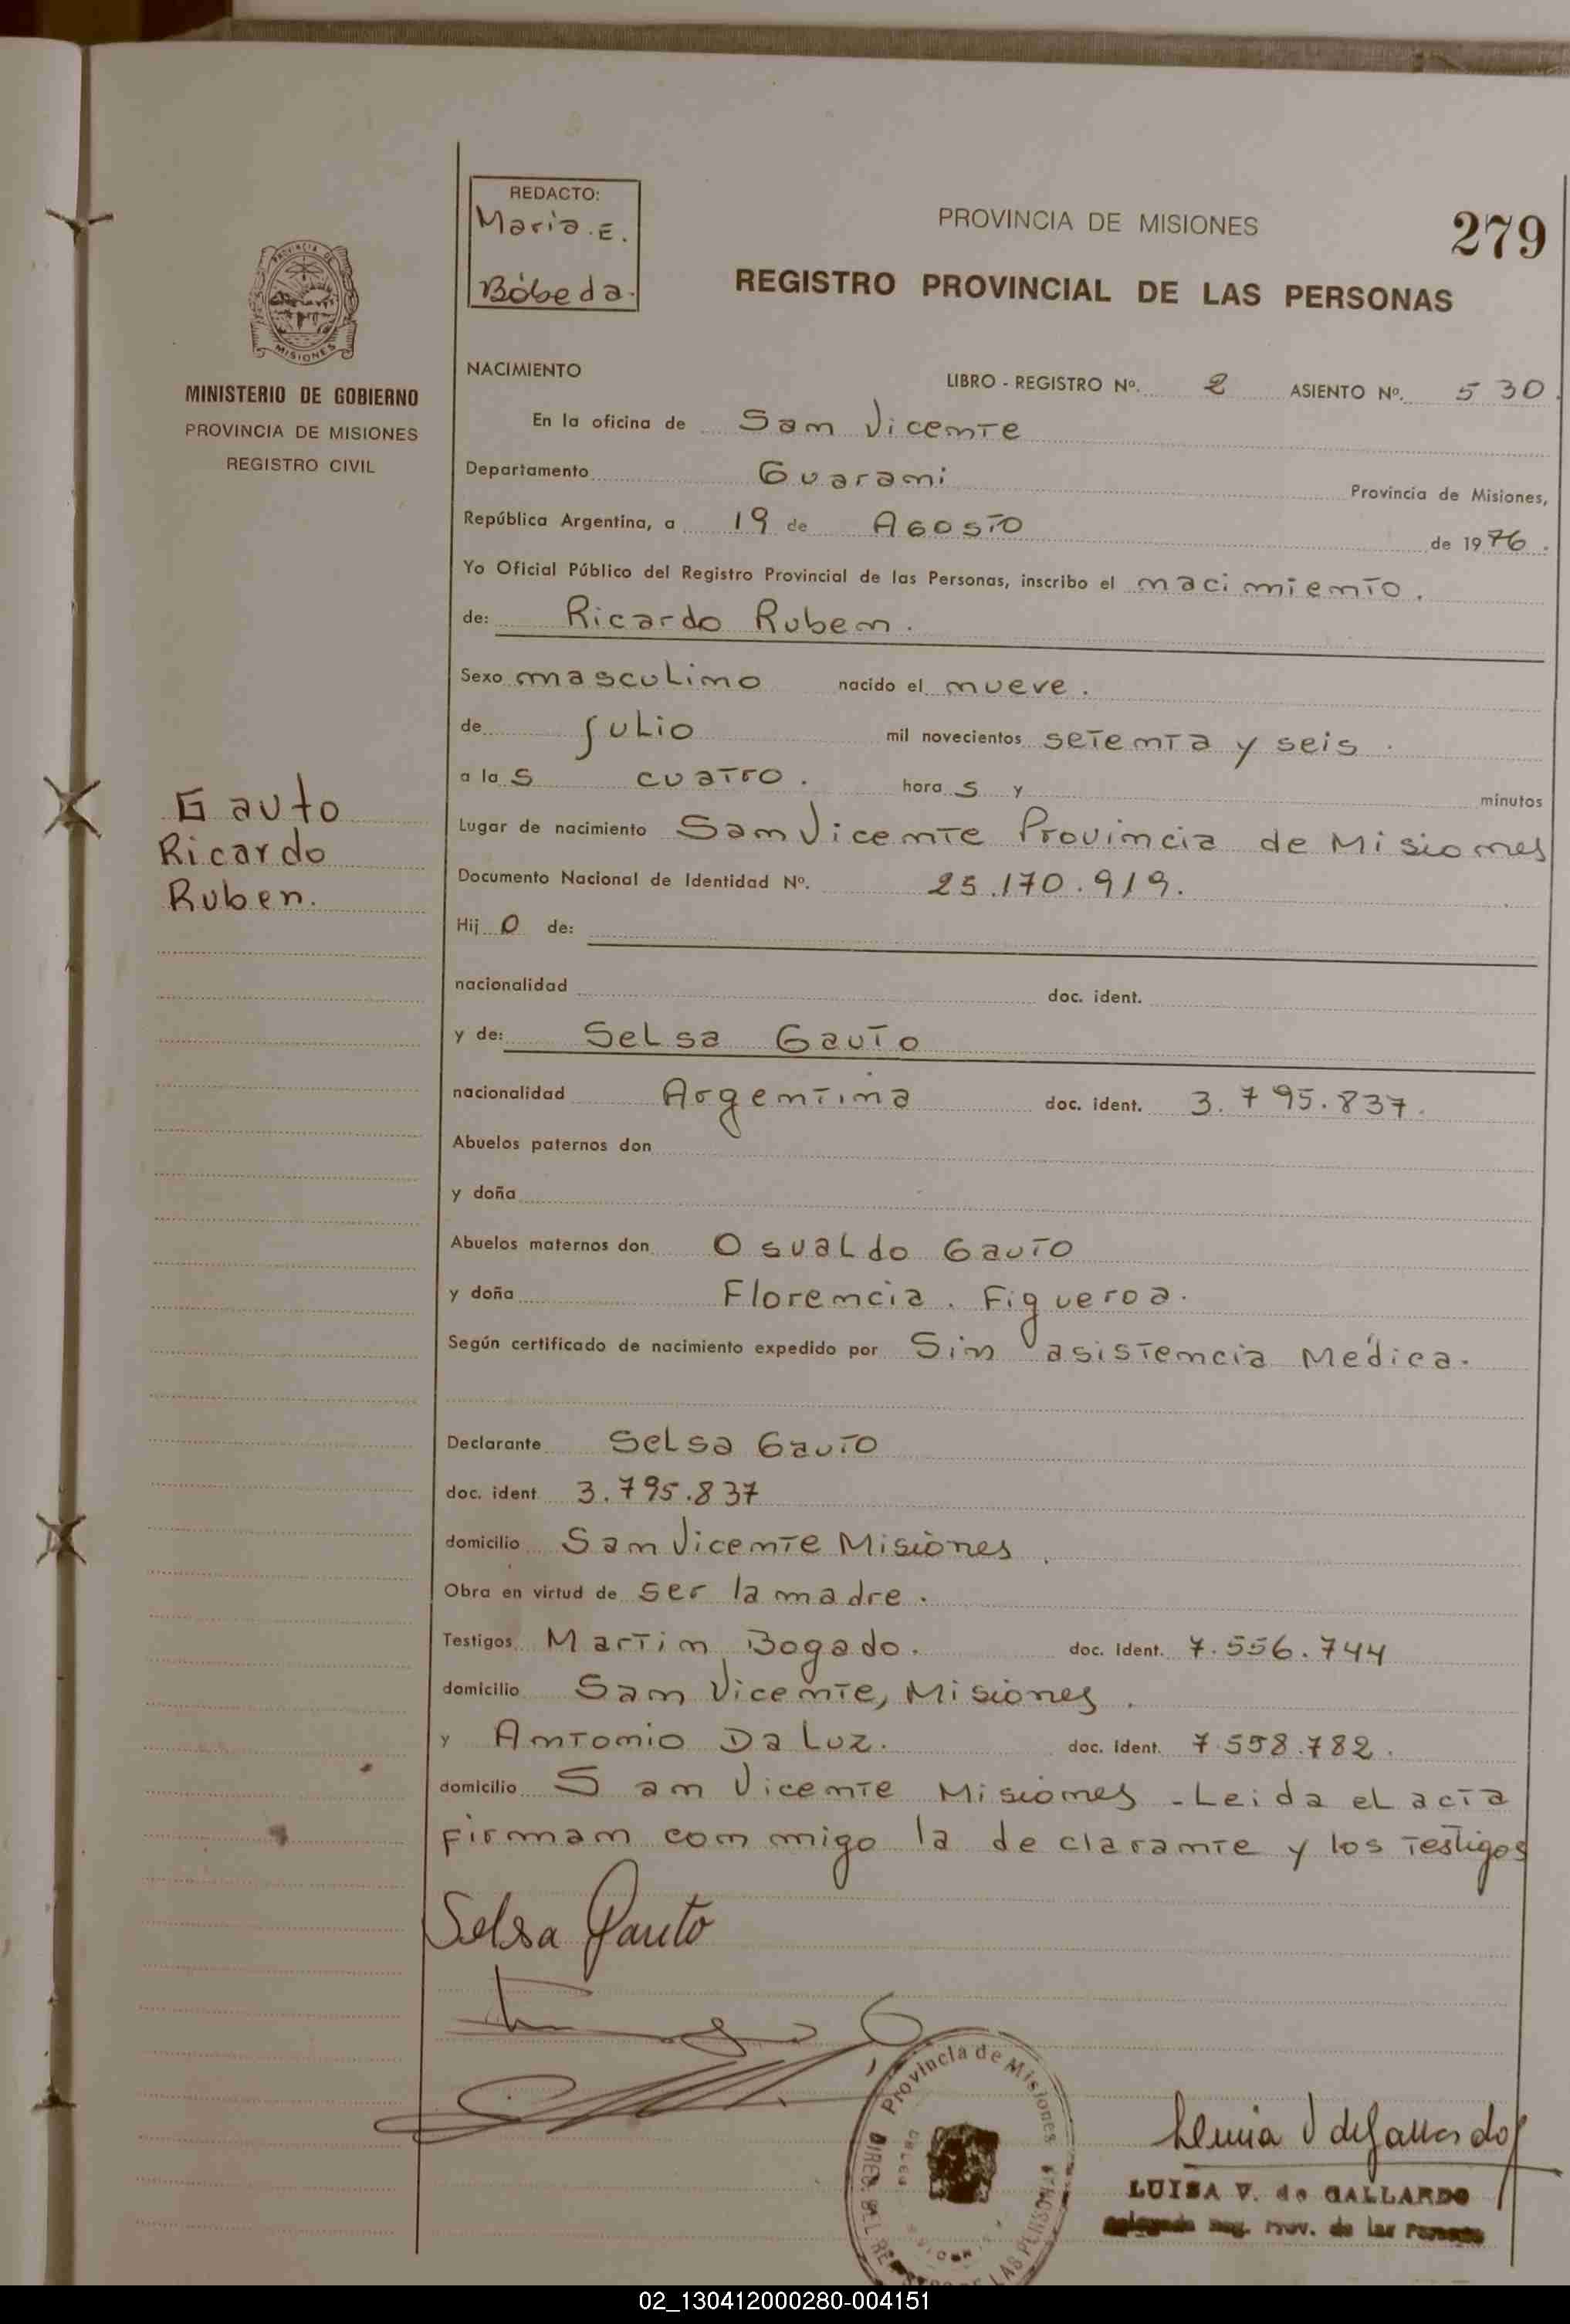 279
REDACTO:
Maria. E.
Bóbeda.
PROVINCIA DE MISIONES
REGISTRO PROVINCIAL DE LAS PERSONAS
PROVINCIA DE
MISIONES
MINISTERIO DE GOBIERNO
PROVINCIA DE MISIONES
REGISTRO CIVIL
Gauto
Ricardo
Ruben.
NACIMIENTO
LIBRO - REGISTRO Nº. 2 ASIENTO Nº. 530.
En la oficina de San Vicente
Departamento Guarani Provincia de Misiones,
República Argentina, a 19 de Agosto de 1976.
Yo Oficial Público del Registro Provincial de las Personas, inscribo el nacimiento.
de: Ricardo Ruben.
Sexo masculino nacido el nueve.
de Julio mil novecientos setenta y seis.
a las cuatro. horas y minutos
Lugar de nacimiento San Vicente Provincia de Misiones
Documento Nacional de Identidad Nº. 25.170.919.
Hijo de:
nacionalidad doc. ident.
y de: Selsa Gauto
nacionalidad Argentina doc. ident. 3.795.837.
Abuelos paternos don
y doña
Abuelos maternos don Osualdo Gauto
y doña Florencia. Figueroa.
Según certificado de nacimiento expedido por Sin asistencia Médica.
Declarante Selsa Gauto
doc. ident 3.795.837
domicilio San Vicente Misiones.
Obra en virtud de ser la madre.
Testigos Martin Bogado. doc. ident. 7.556.744
domicilio San Vicente, Misiones.
y Antonio Da Luz. doc. ident. 7.558.782.
domicilio San Vicente Misiones - Leida el acta
firman con migo la declarante y los testigos
Selsa Gauto
Provincia de Misiones
LAS PERSONAS
LUISA V. de GALLARDO
Reg. Prov. de las Personas
02_130412000280-004151